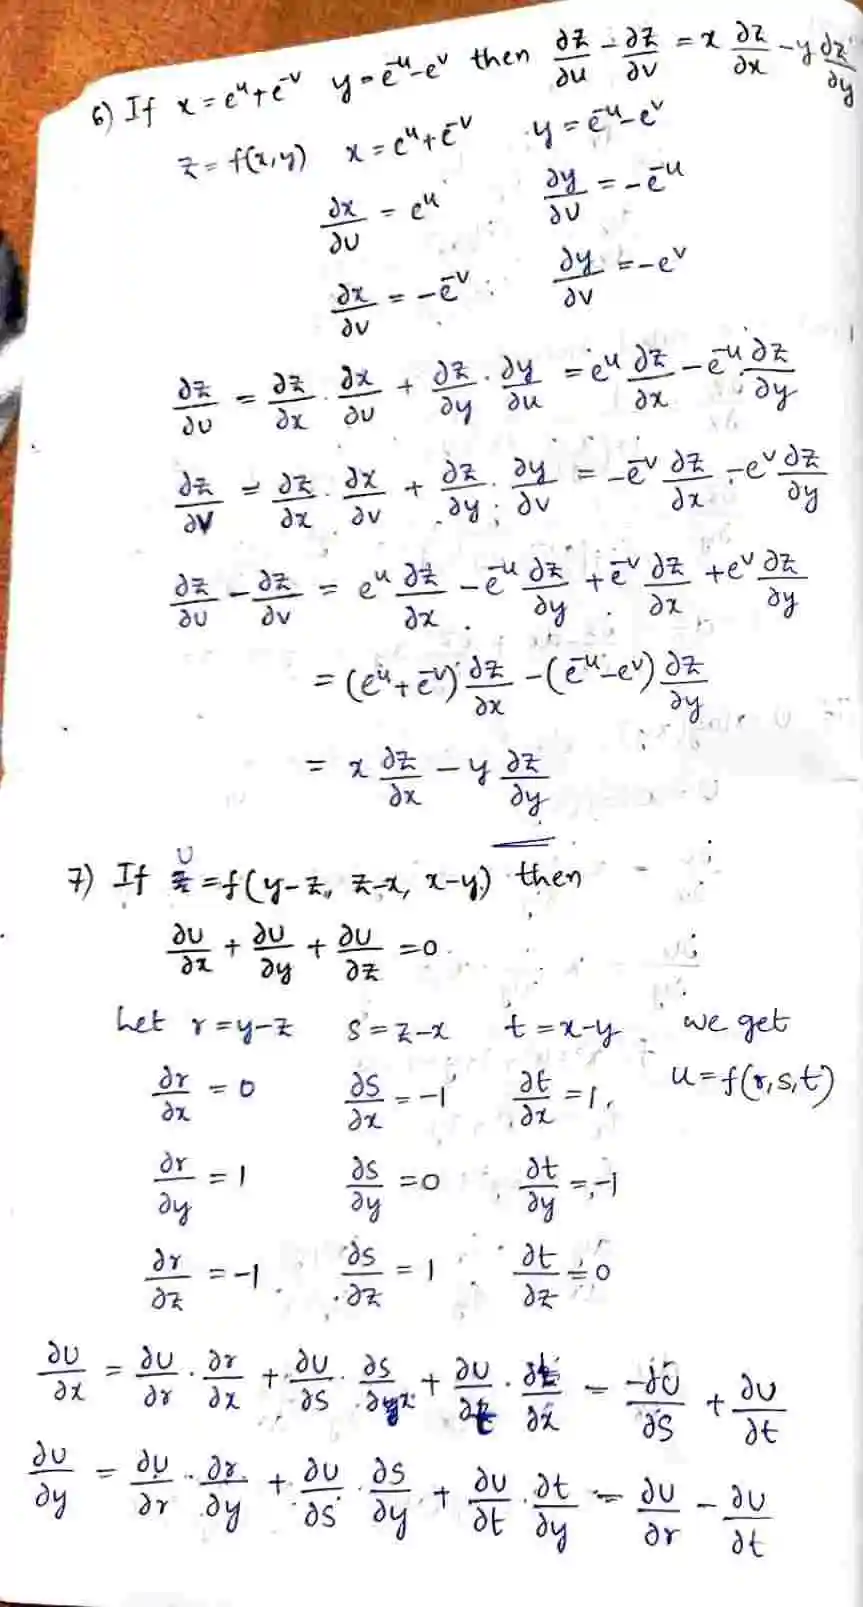 6) If x = e^u + e^-v y = e^-u - e^v then ∂z/∂u - ∂z/∂v = x ∂z/∂x - y ∂z/∂y
z = f(x,y) x = e^u + e^-v y = e^-u - e^v
∂x/∂u = e^u ∂y/∂u = -e^-u
∂x/∂v = -e^-v ∂y/∂v = -e^v
∂z/∂u = ∂z/∂x · ∂x/∂u + ∂z/∂y · ∂y/∂u = e^u ∂z/∂x - e^-u ∂z/∂y
∂z/∂v = ∂z/∂x · ∂x/∂v + ∂z/∂y · ∂y/∂v = -e^-v ∂z/∂x - e^v ∂z/∂y
∂z/∂u - ∂z/∂v = e^u ∂z/∂x - e^-u ∂z/∂y + e^-v ∂z/∂x + e^v ∂z/∂y
= (e^u + e^-v) ∂z/∂x - (e^-u - e^v) ∂z/∂y
= x ∂z/∂x - y ∂z/∂y
7) If U = f(y-z, z-x, x-y) then
∂U/∂x + ∂U/∂y + ∂U/∂z = 0.
Let r = y-z s = z-x t = x-y we get
∂r/∂x = 0 ∂s/∂x = -1 ∂t/∂x = 1, u = f(r,s,t)
∂r/∂y = 1 ∂s/∂y = 0 ∂t/∂y = -1
∂r/∂z = -1 ∂s/∂z = 1 ∂t/∂z = 0
∂U/∂x = ∂U/∂r · ∂r/∂x + ∂U/∂s · ∂s/∂x + ∂U/∂t · ∂t/∂x = -∂U/∂s + ∂U/∂t
∂U/∂y = ∂U/∂r · ∂r/∂y + ∂U/∂s · ∂s/∂y + ∂U/∂t · ∂t/∂y = ∂U/∂r - ∂U/∂t